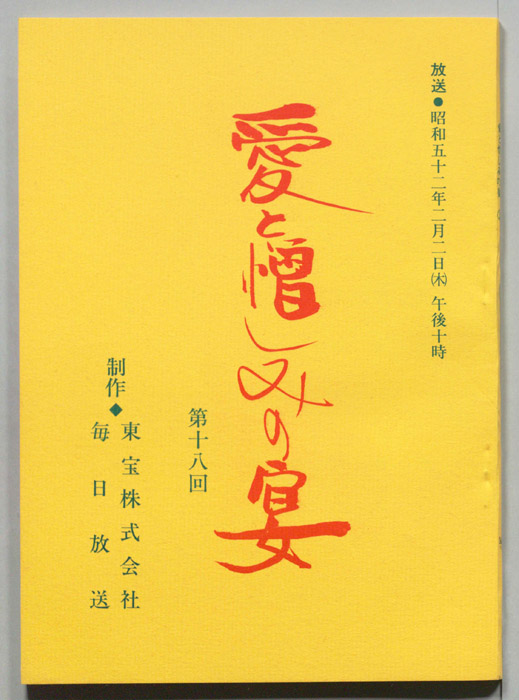 放送●昭和五十二年二月二日㈭ 午後十時
愛と憎しみの宴
第十八回
制作◆東宝株式会社
毎日放送